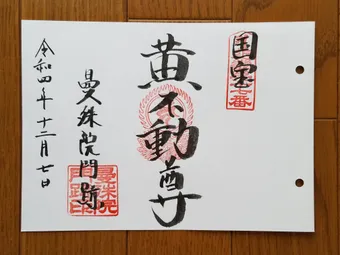 国宝
七番
黄不動尊
曼殊院門跡
曼殊院
門跡印
令和四年十二月七日